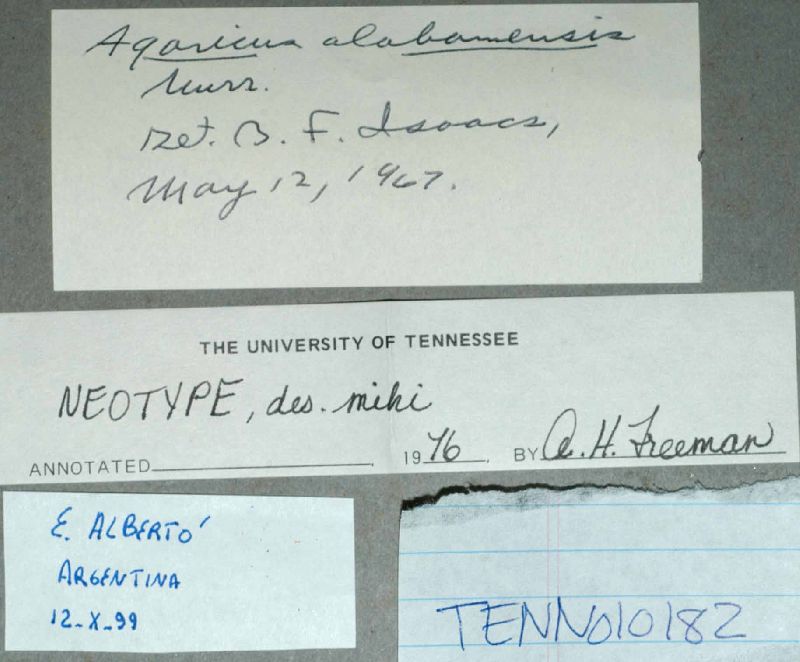 Agaricus alabamensis
Murr.
Det. B. F. Isaacs,
May 12, 1967.
THE UNIVERSITY OF TENNESSEE
NEOTYPE, des. mihi
ANNOTATED____________, 1976. BY A. H. Freeman
E. ALBERTO'
ARGENTINA
12-X-99
TENN010182